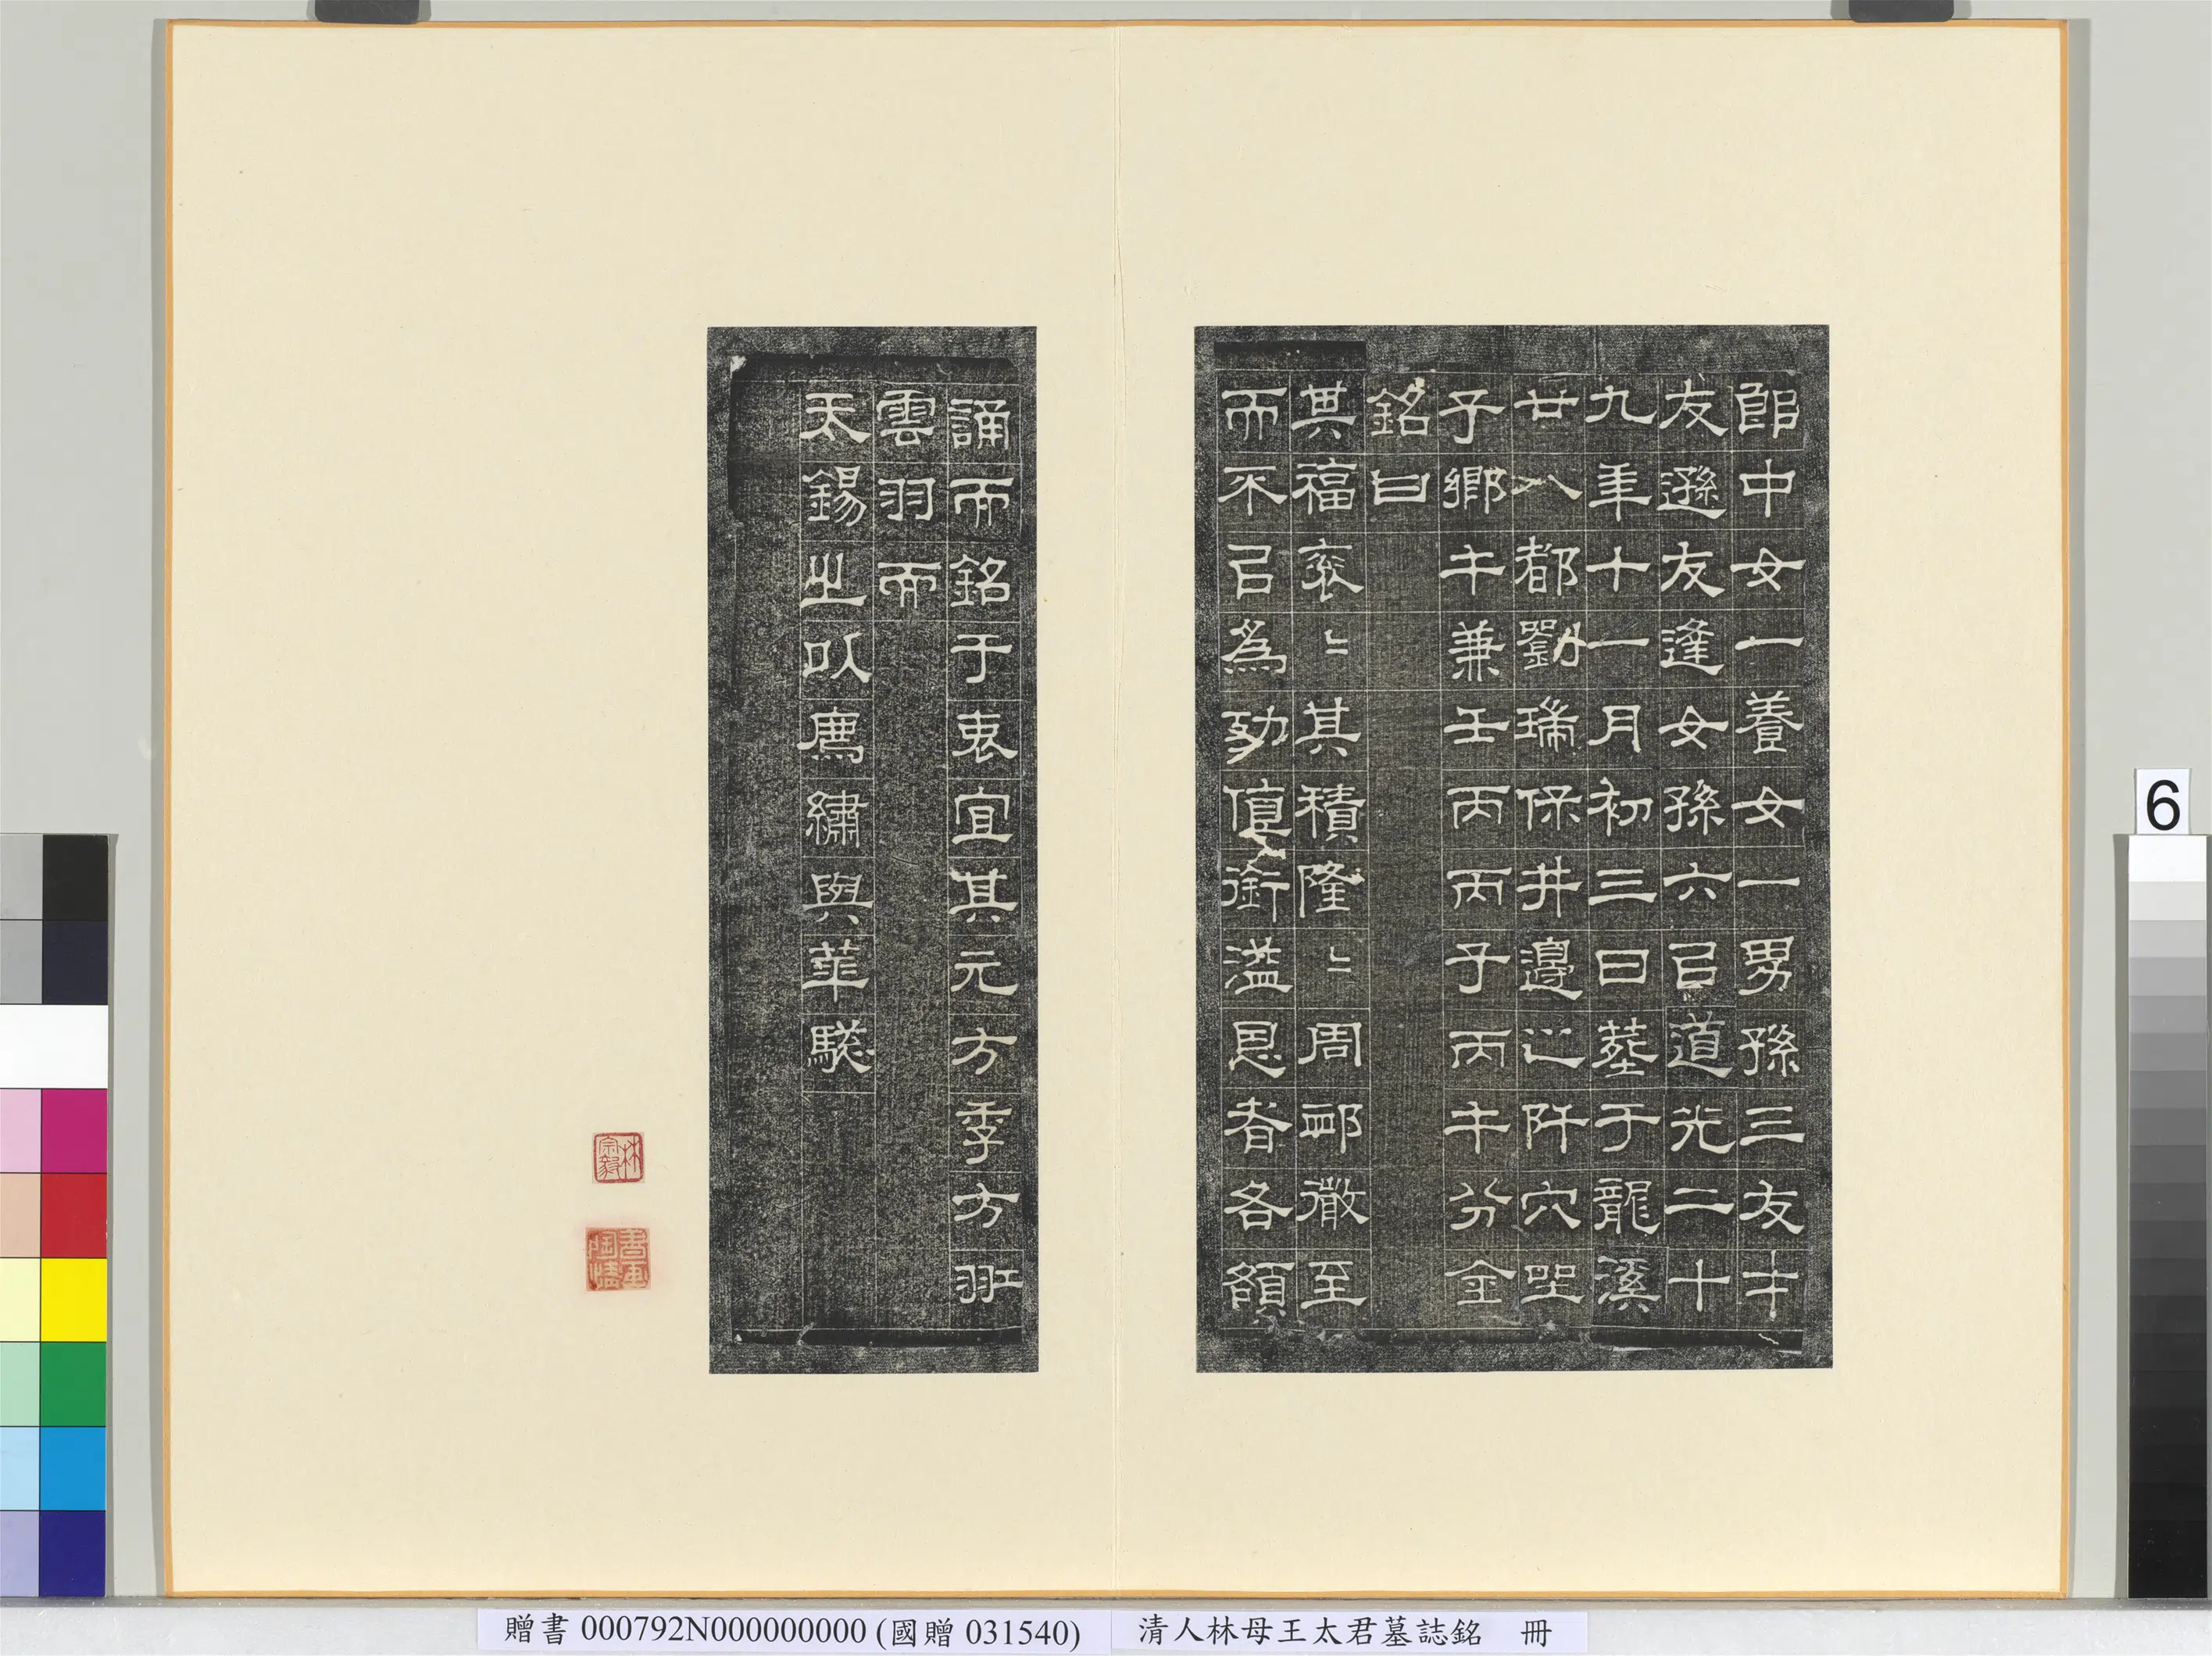 郎中女一養女一男孫三友才
友遜友逢女孫六㠯道光二十
九年十一月初三日葬于龍溪
廿八都劉瑞保井邊之阡穴坐
子鄉午兼壬丙丙子丙午分金
銘曰
其福袞〻其積隆〻周卹徹至
而不㠯為勞值衔溢恩者各額
誦而銘于衷宜其元方季方羾
雲羽而
天錫之以廌繡與華驄
林宗毅
書畫陶情
6
贈書 000792N000000000 (國贈 031540)
清人林母王太君墓誌銘 冊